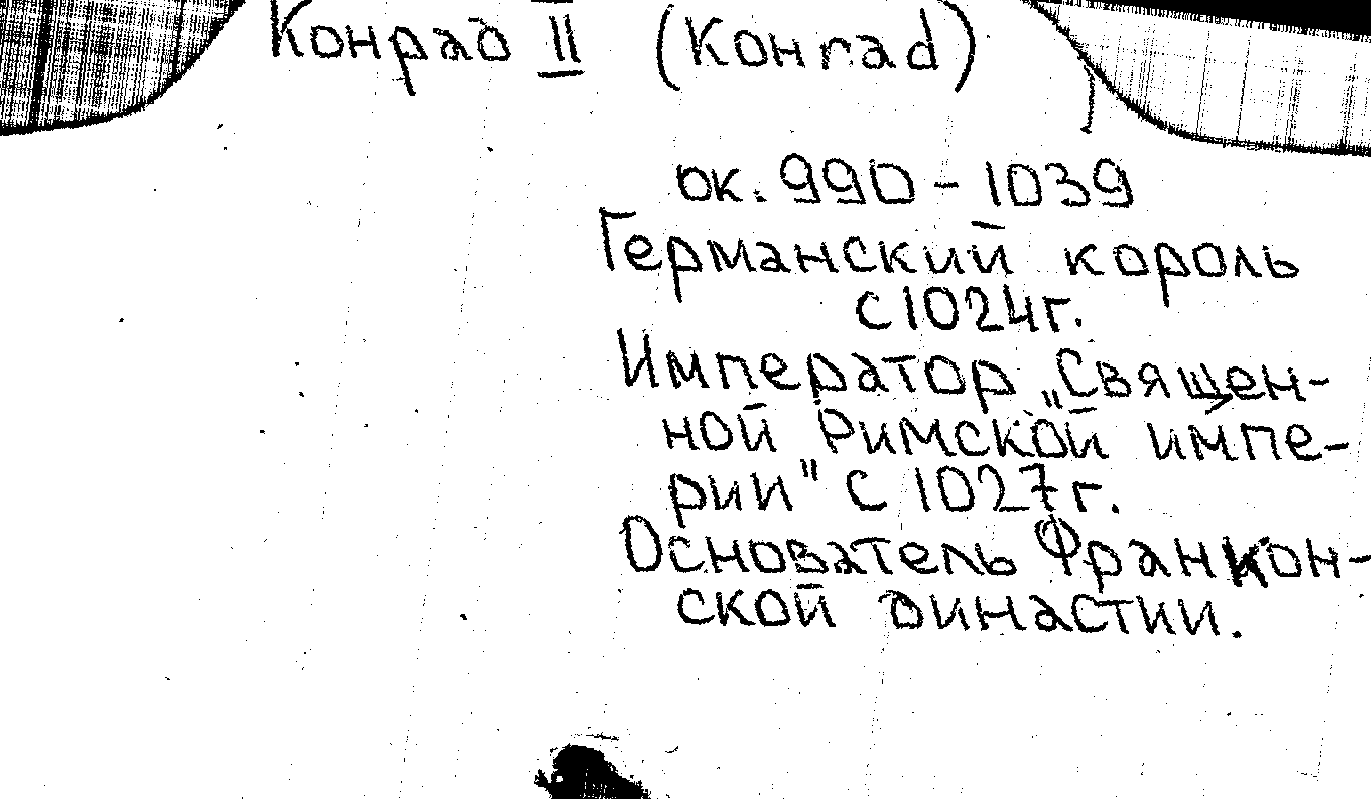 Конрад II (Konrad)
ок. 990 - 1039
Германский король
с 1024г.
Император „Священ-
ной Римской импе-
рии" с 1027г.
Основатель Франкон-
ской династии.